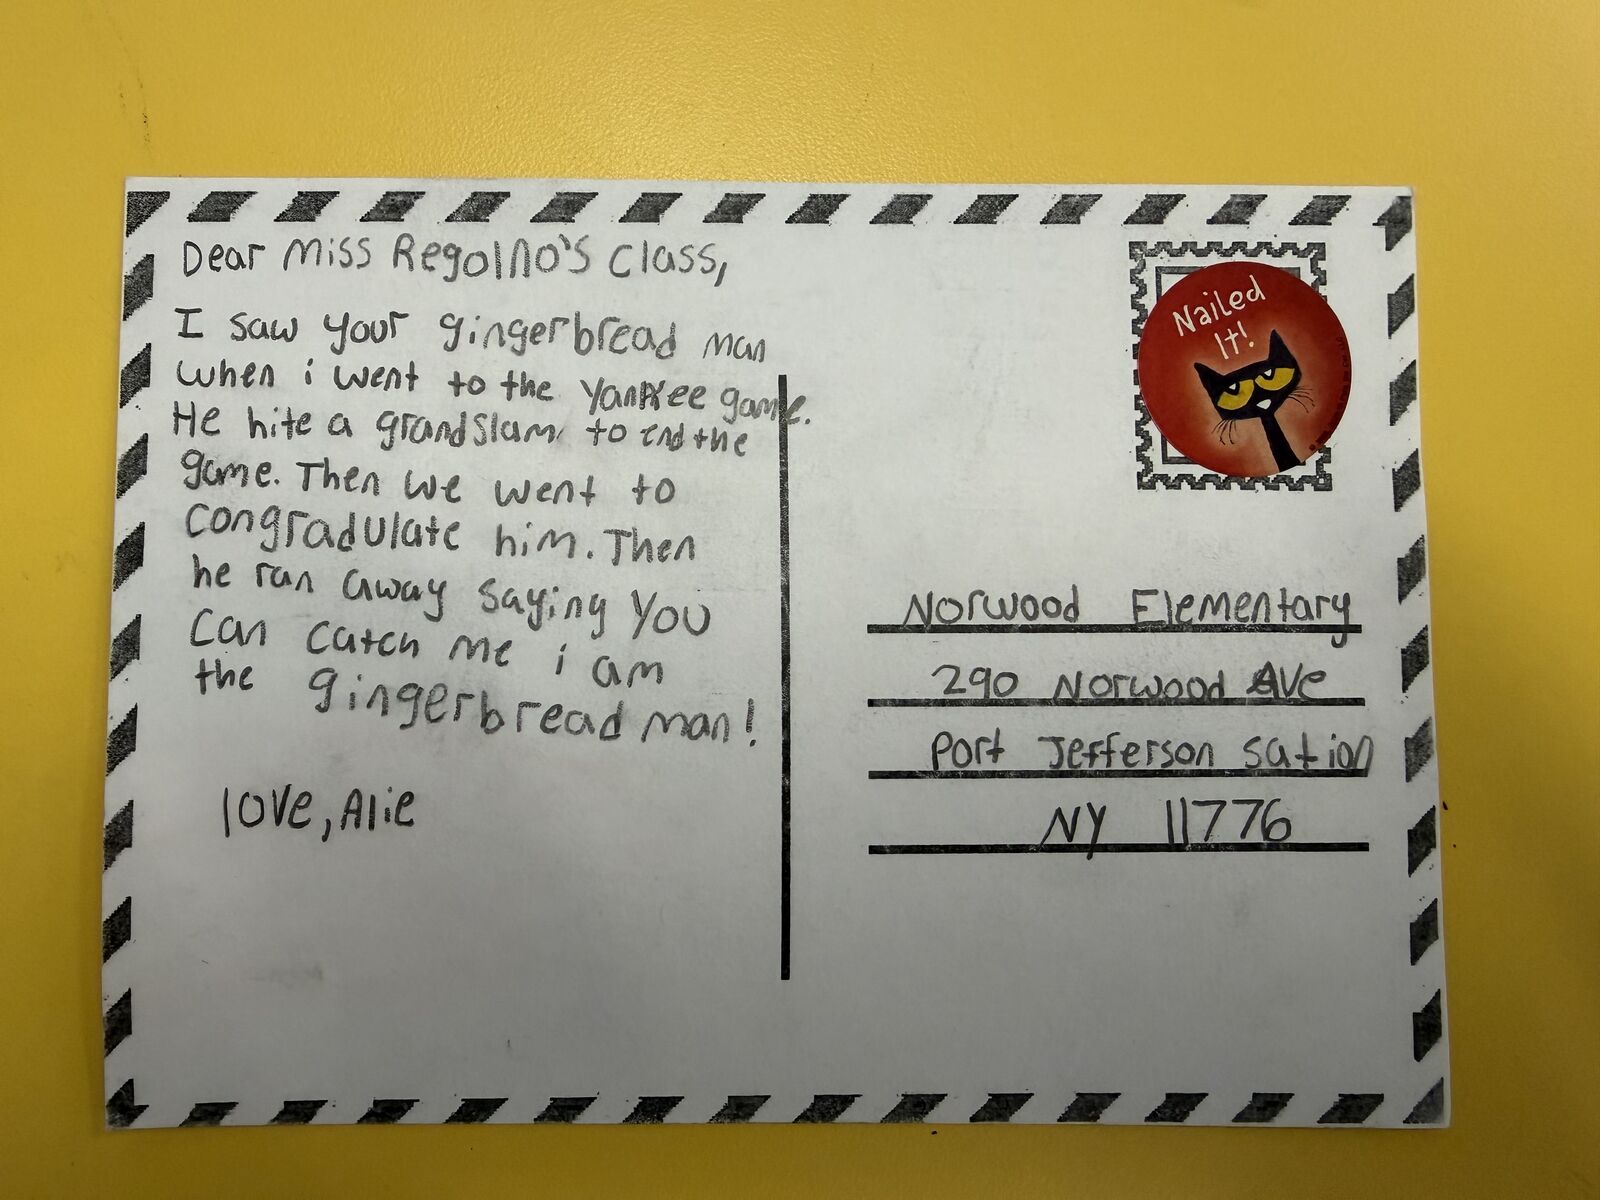 Dear Miss Regolno's Class,
I saw your gingerbread man
when i went to the Yankee game.
He hite a grandslam to end the
game. Then we went to
congradulate him. Then
he ran away saying You
Can catch me i am
the gingerbread man!
love, Alie
Nailed
It!
Norwood Elementary
290 Norwood Ave
Port Jefferson Sation
NY 11776